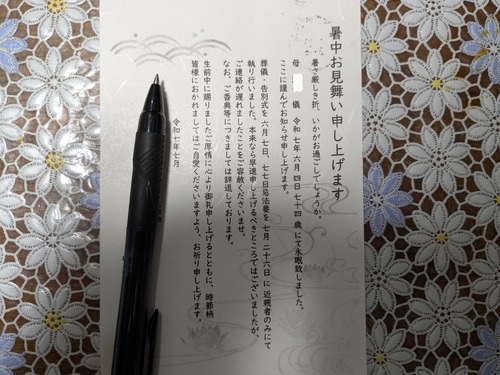 暑中お見舞い申し上げます
暑さ厳しき折、いかがお過ごしでしょうか。
母 儀 令和七年六月四日七十四歳にて永眠致しました。
ここに謹んでお知らせ申し上げます。
葬儀、告別式を六月七日、七七日忌法要を七月二十六日に近親者のみにて
執り行いました。本来なら早速申し上げるべきところではございましたが、
ご連絡が遅れましたことをご容赦くださいませ。
なお、ご香典等につきましては辞退しております。
生前中に賜りましたご厚情に心より御礼申し上げるとともに、時節柄
皆様におかれましてはご自愛くださいますよう、お祈り申し上げます。
令和七年七月